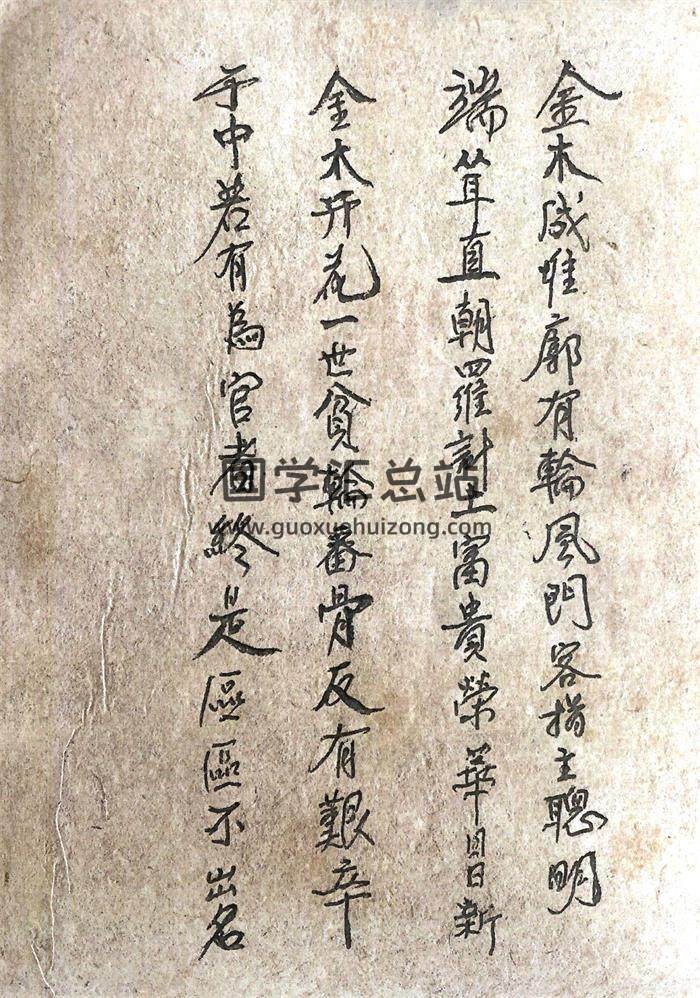 金木成惟廓有輪風門容指主聰明
端耸直朝羅計上富貴榮華日日新
金木开花一世貧輪番骨反有艱辛
于中若有為官者終是區區不出名
国学汇总站
www.guoxuehuizong.com